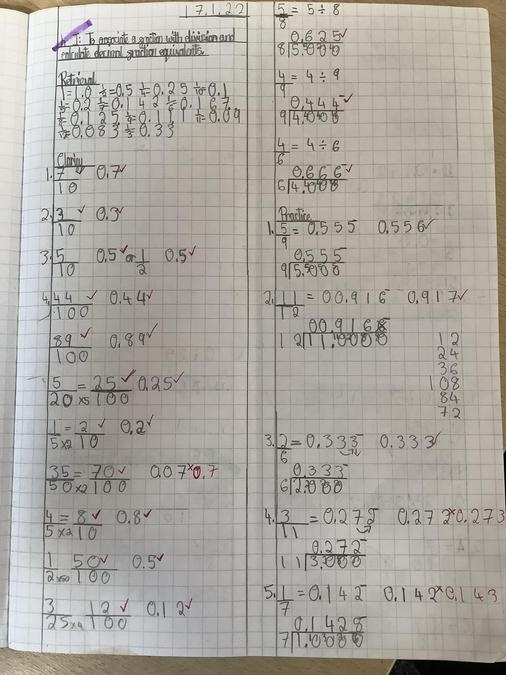 17.1.22
1: To associate a fraction with division and
calculate decimal fraction equivalents.
Retrieval
1/1=1.0 1/2=0.5 1/4=0.25 1/10=0.1
1/5=0.2 1/7=0.142 1/6=0.167
1/8=0.125 1/9=0.111 1/11=0.09
1/12=0.083 1/3=0.33
Clarify
1. 7/10 ✓ 0.7✓
2. 3/10 ✓ 0.3✓
3. 5/10 0.5✓ or 1/2 0.5✓
4. 44/100 ✓ 0.44✓
89/100 ✓ 0.89✓
5/20 ×5 = 25/100 ✓ 0.25✓
1/5 ×2 = 2/10 ✓ 0.2✓
35/50 ×2 = 70/100 ✓ 0.07× 0.7
4/5 ×2 = 8/10 ✓ 0.8✓
1/2 ×50 50/100 ✓ 0.5✓
3/25 ×4 12/100 ✓ 0.12✓
5/8 = 5÷8
0.625✓
8 5.000
4/9 = 4÷9
0.444✓
9 4.000
4/6 = 4÷6
0.666✓
6 4.000
Practice
1. 5/9 = 0.555 0.556✓
0.555
9 5.000
2. 11/12 = 00.916 0.917✓
00.9168
12 11.0000
12
24
36
108
84
72
3. 2/6 = 0.333 0.333✓
0.333
6 2.000
4. 3/11 = 0.272 0.272× 0.273
0.272
11 3.000
5. 1/7 = 0.142 0.142× 0.143
0.1428
7 1.0000